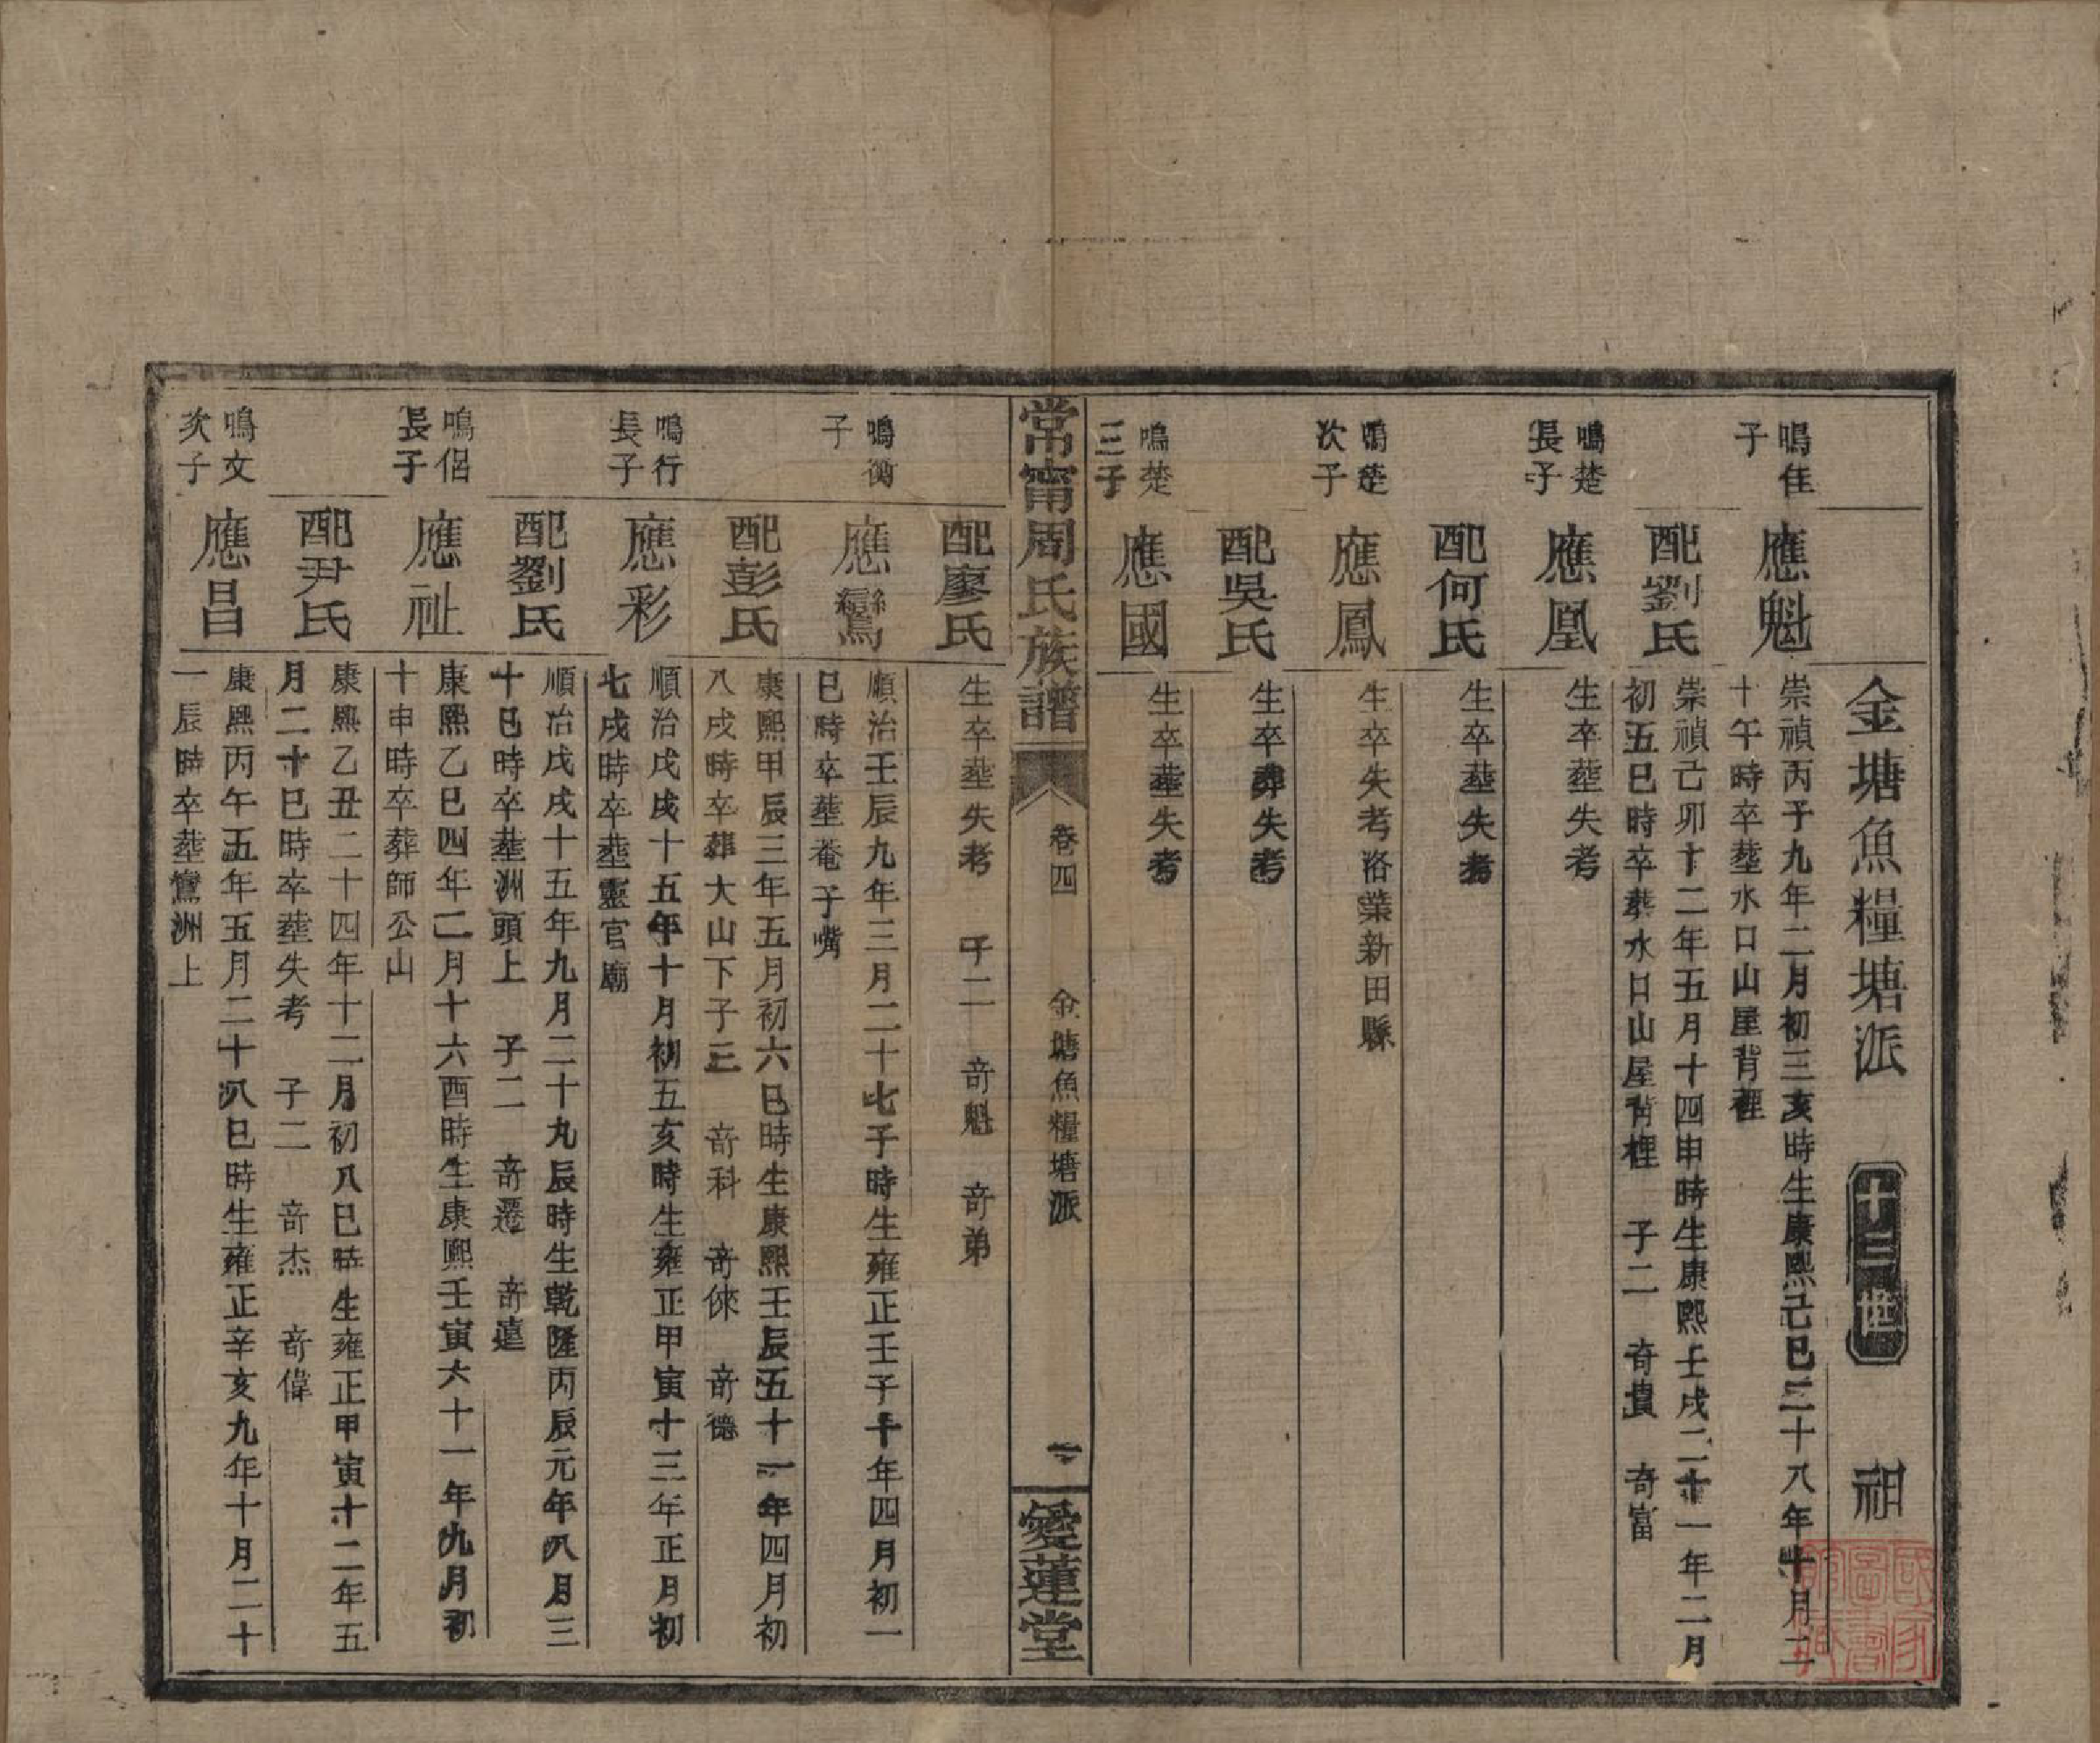 金塘魚糧塘派 十三世 祖
鳴佳
子
應魁
崇禎丙子九年二月初三亥時生康熙己巳二十八年十月二
十午時卒塟水口山屋背裡
配劉氏
崇禎己卯十二年五月十四申時生康熙壬戌二十一年二月
初五巳時卒葬水口山屋背裡 子二 奇貴 奇富
鳴楚
長子
應凰
生卒塟失考
配何氏
生卒塟失考
鳴楚
次子
應鳳
生卒失考洛業新田縣
配吳氏
生卒葬失考
鳴楚
三子
應國
生卒塟失考
常甯周氏族譜 卷四 金塘魚糧塘派 一 愛蓮堂
配廖氏
生卒塟失考 子二 奇魁 奇弟
鳴衡
子
應鸞
順治壬辰九年三月二十七子時生雍正壬子十年四月初一
巳時卒塟菴子嘴
配彭氏
康熙甲辰三年五月初六巳時生康熙壬辰五十一年四月初
八戌時卒葬大山下子三 奇科 奇倈 奇德
鳴行
長子
應彩
順治戊戌十五年十月初五亥時生雍正甲寅十三年正月初
七戌時卒塟靈官廟
配劉氏
順治戊戌十五年九月二十九辰時生乾隆丙辰元年八月三
十巳時卒塟洲頭上 子二 奇遷 奇
鳴侶
長子
應祉
康熙乙巳四年二月十六酉時生康熙壬寅六十一年九月初
十申時卒葬師公山
配尹氏
康熙乙丑二十四年十二月初八巳時生雍正甲寅十二年五
月二十巳時卒塟失考 子二 奇杰 奇偉
鳴文
次子
應昌
康熙丙午五年五月二十八巳時生雍正辛亥九年十月二十
一辰時卒塟鸞洲上